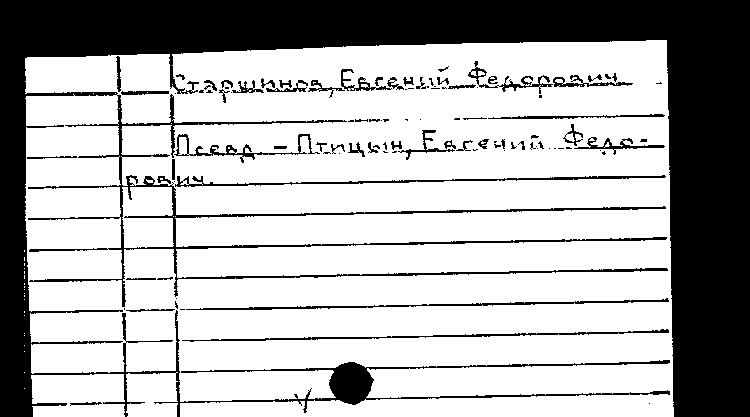 Старшинов, Евгений Федорович
Псевд. - Птицын, Евгений Федо-
рович.
V